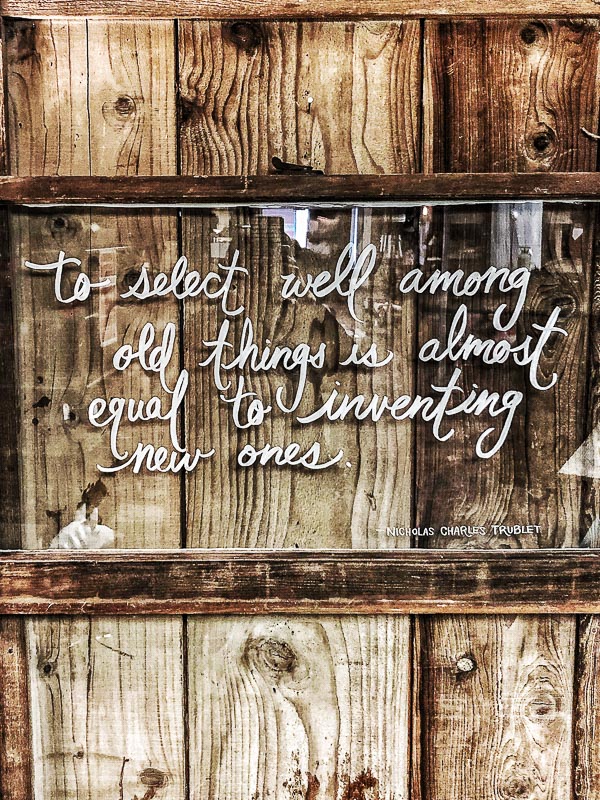 to select well among
old things is almost
equal to inventing
new ones.
- NICHOLAS CHARLES TRUBLET